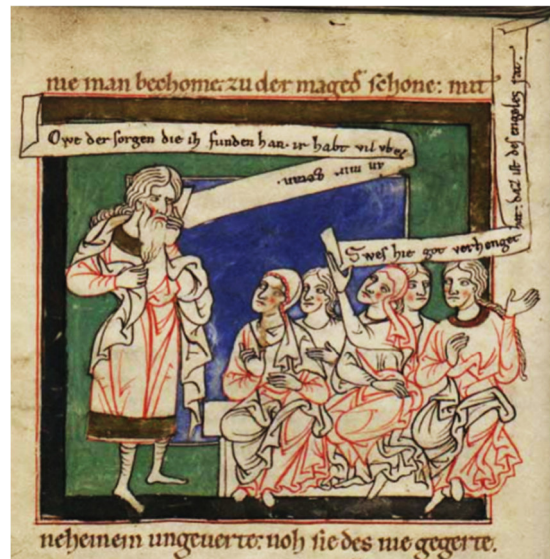 nie man bechome: zu der maged̄ schone: mit
Owe der sorgen die ih funden han. ir habt vil vbel
an mir getan.
Swes hie got verhenget
hat: daz ist des engeles tat.
neheinem ungeuerte: noh sie des nie gegerte.